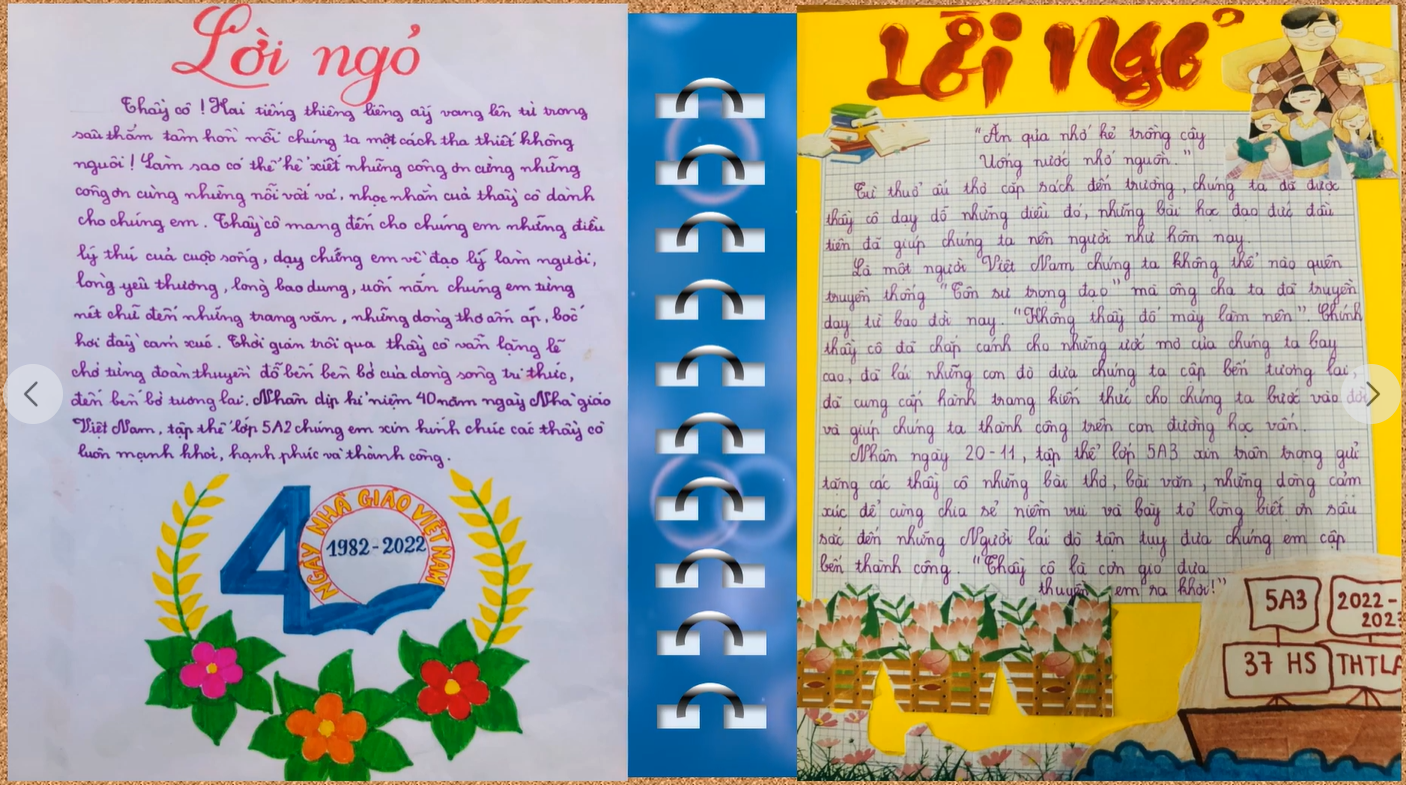 Lời ngỏ
Thầy cô ! Hai tiếng thiêng liêng ấy vang lên từ trong
sâu thẳm tâm hồn mỗi chúng ta một cách tha thiết không
nguôi ! Làm sao có thể kể xiết những công ơn cùng những
công ơn cùng những nỗi vất vả, nhọc nhằn của thầy cô dành
cho chúng em. Thầy cô mang đến cho chúng em những điều
lý thú của cuộc sống, dạy chúng em về đạo lý làm người,
lòng yêu thương, lòng bao dung, uốn nắn chúng em từng
nét chữ đến những trang văn, những dòng thơ ấm áp, bồi
hồi đầy cảm xúc. Thời gian trôi qua thầy cô vẫn lặng lẽ
chở từng đoàn thuyền đỗ bến bên bờ của dòng sông tri thức,
đến bến bờ tương lai. Nhân dịp kỉ niệm 40 năm ngày Nhà giáo
Việt Nam, tập thể lớp 5A2 chúng em xin kính chúc các thầy cô
luôn mạnh khỏe, hạnh phúc và thành công.
40
NGÀY NHÀ GIÁO VIỆT NAM
1982-2022
Lời Ngỏ
"Ăn quả nhớ kẻ trồng cây
Uống nước nhớ nguồn."
Từ thuở ấu thơ cắp sách đến trường, chúng ta đã được
thầy cô dạy dỗ những điều đó, những bài học đạo đức đầu
tiên đã giúp chúng ta nên người như hôm nay.
Là một người Việt Nam chúng ta không thể nào quên
truyền thống "Tôn sư trọng đạo" mà ông cha ta đã truyền
dạy từ bao đời nay. "Không thầy đố mày làm nên" Chính
thầy cô đã chắp cánh cho những ước mơ của chúng ta bay
cao, đã lái những con đò đưa chúng ta cập bến tương lai,
đã cung cấp hành trang kiến thức cho chúng ta bước vào đời
và giúp chúng ta thành công trên con đường học vấn.
Nhân ngày 20-11, tập thể lớp 5A3 xin trân trọng gửi
tặng các thầy cô những bài thơ, bài văn, những dòng cảm
xúc để cùng chia sẻ niềm vui và bày tỏ lòng biết ơn sâu
sắc đến những Người lái đò tận tụy đưa chúng em cập
bến thành công. "Thầy cô là cơn gió đưa
thuyền em ra khơi!"
5A3
2022-
2023
37 HS
THTLA